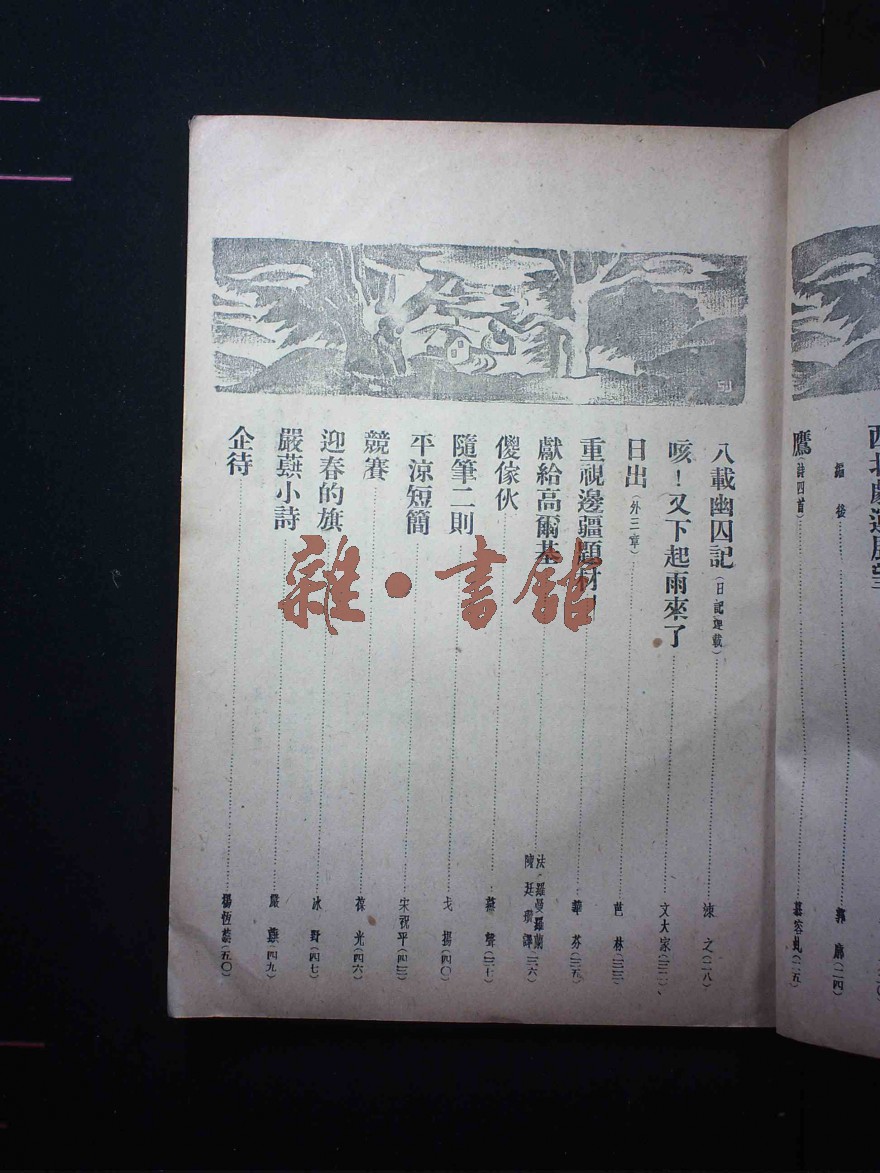 西北劇運展望
編後 郭廓(二四)
鷹(詩四首)
八載幽囚記(日記連載) 涑之(二八)
咳!又下起雨來了 文大家(三二)
日出(外三章) 芭林(三三)
重視邊疆題材 華芬(三五)
獻給高爾基 法·羅曼羅蘭 陳廷瓚譯(三六)
傻傢伙 聲(三七)
隨筆二則 戈揚(四〇)
平涼短簡 宋祝平(四三)
競賽 葆光(四六)
迎春的旗 冰野(四七)
嚴蕻小詩 嚴蕻(四九)
企待 楊恆(五〇)
雜·書館
SJ